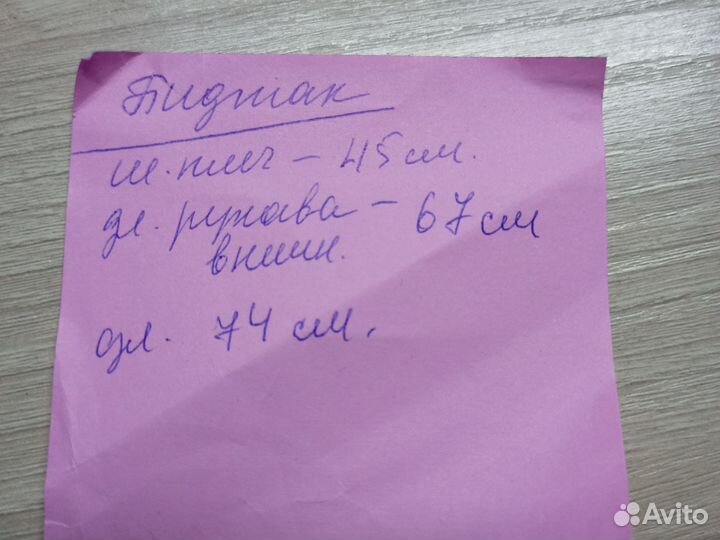 Пиджак
ш. плеч – 45 см.
дл. рукава – 67 см
внешн.
дл. 74 см.
Avito